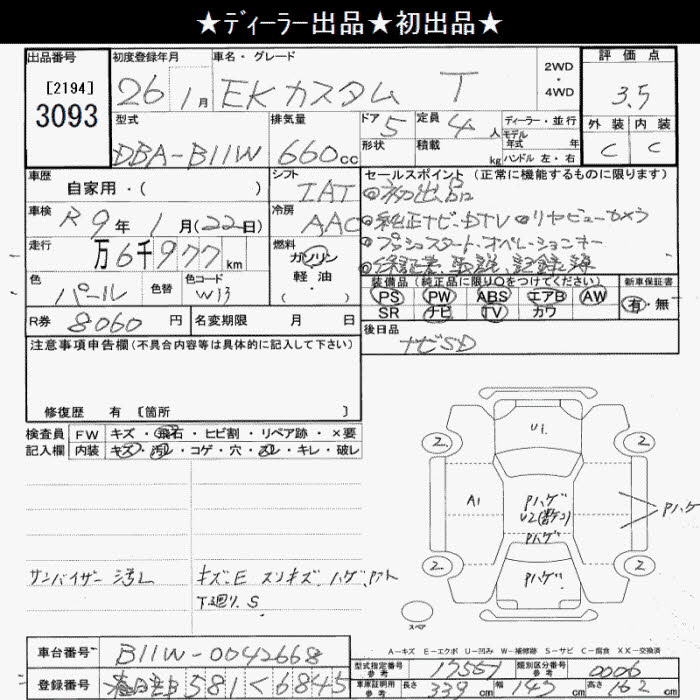 ★ディーラー出品★初出品★
出品番号
[2194]
3093
初度登録年月
26 1月
車名・グレード
EKカスタム T
2WD
・
4WD
評価点
3.5
外装 内装
C C
型式
DBA-B11W
排気量
660cc
ドア 5
形状
定員 4人
積載 kg
ディーラー・並行
モデル年式 年
ハンドル 左・右
車歴
自家用・( )
シフト
IAT
セールスポイント (正常に機能するものに限ります)
◎初出品
◎純正ナビ・DTV ◎リヤビューカメラ
◎プッシュスタート・オペレーションキー
◎保証書、取説、記録簿
車検
R9年1月(22日)
冷房
AAC
走行
万6千977km
燃料
ガソリン
軽・油
( ・ )
色
パール
色替
色コード
W13
装備品 (純正品に限り○をつけてください)
PS PW ABS エアB AW
SR ナビ TV カワ
新車保証書
有・無
R券 8060円
名変期限 月 日
後日品
ナビSD
注意事項申告欄(不具合内容等は具体的に記入して下さい)
修復歴 有 〔箇所 〕
検査員記入欄
FW キズ・飛石・ヒビ割・リペア跡・×要
内装 キズ・汚レ・コゲ・穴・スレ・キレ・破レ
サンバイザー 汚レ
キズ・E スリキズ ハゲ タッチ
下廻り.S
U1.
2 2
A1
Pハゲ
Pハゲ
Pハゲ
2 2
Pハゲ.
スペア
A－キズ E－エクボ U－凹み W－補修跡 S－サビ C－腐食 XX－交換済
車台番号
B11W-0042668
登録番号
春日部 581 く 6845
型式指定番号
参考
17557
類別区分番号
参考
0006
車庫証明用
参考
長さ 339cm
幅 147cm
高さ 162cm